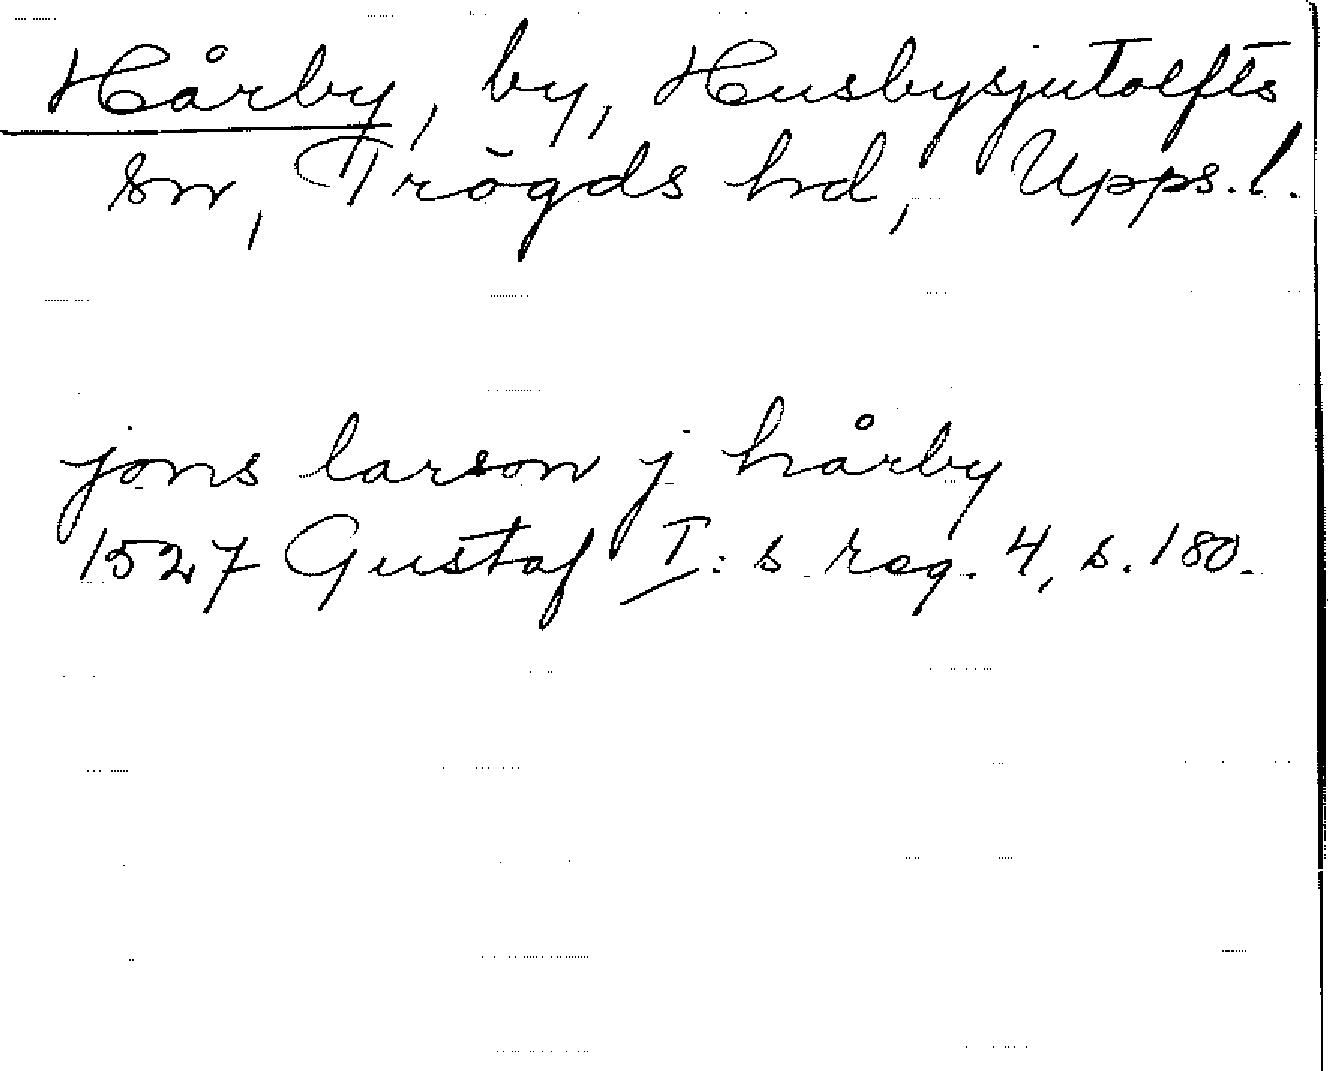 Hårby, by, Husbysjutolfts
sn, Trögds hd, Upps. l.
jons larson j hårby
1527 Gustaf I: s reg. 4, s. 180.